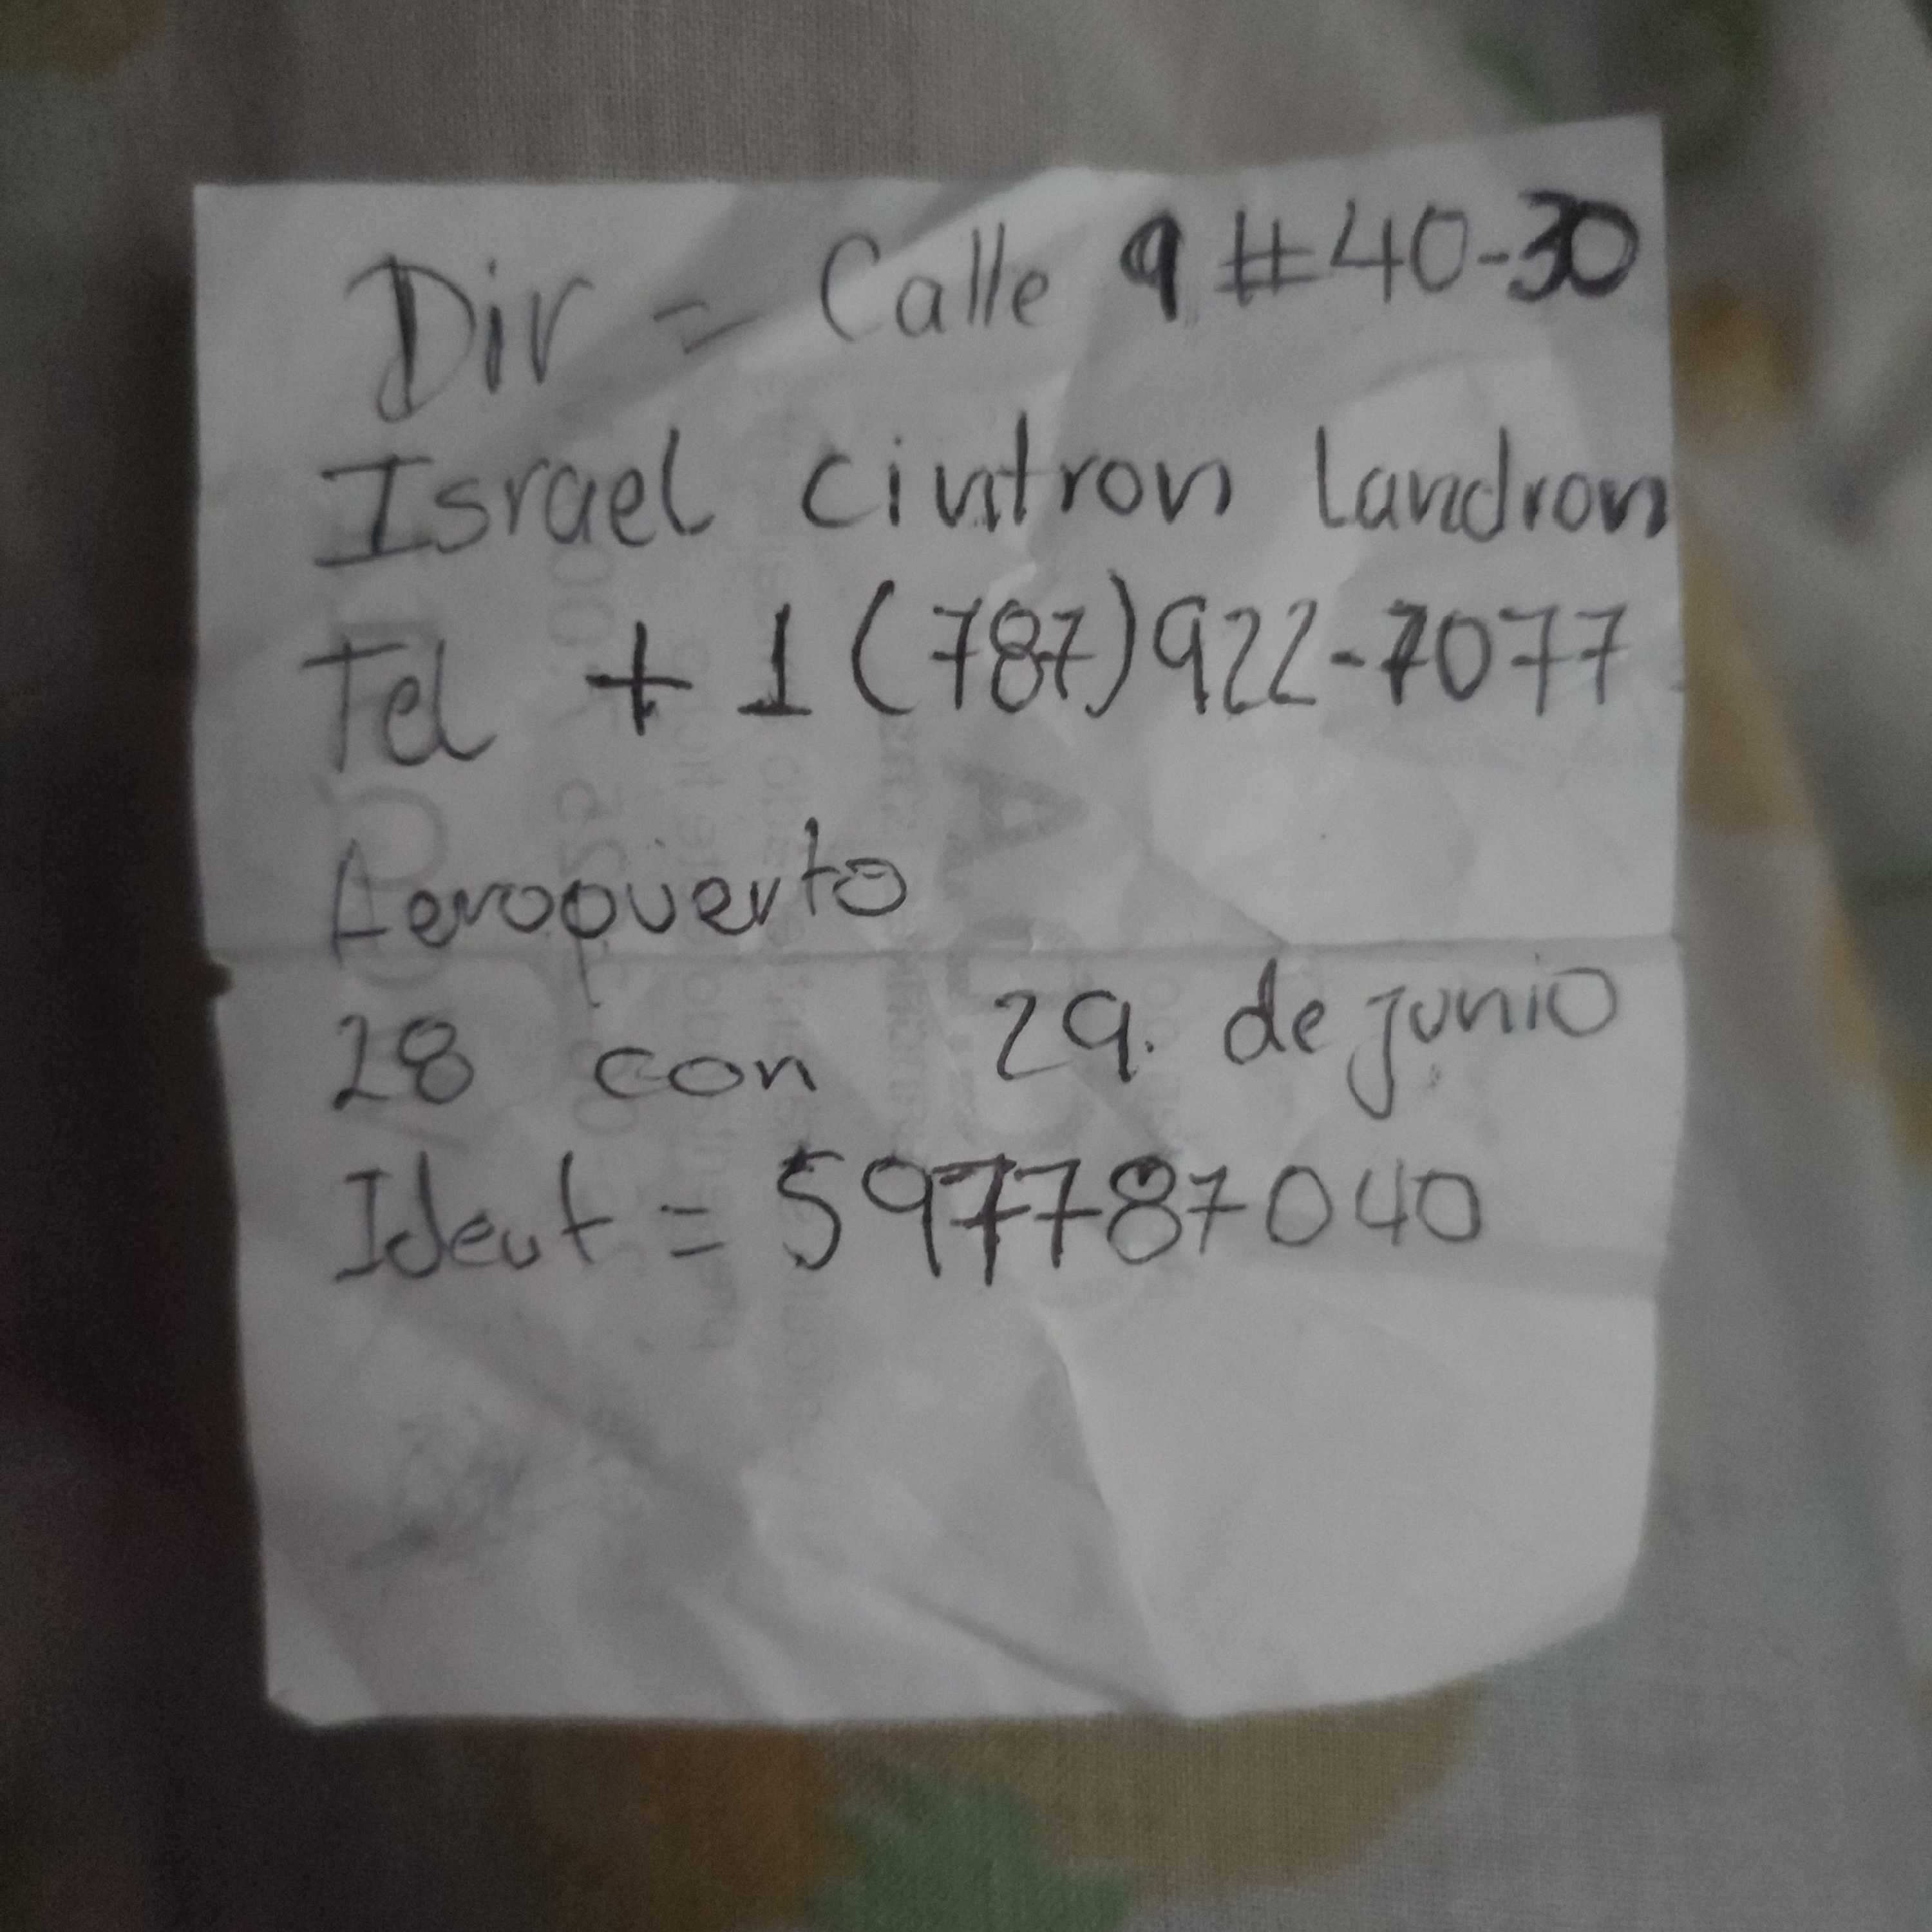 Dir = Calle 9 #40-30
Israel cintron Landron
Tel +1(787)922-7077
Aeropuerto
28 con 29. de junio
Ident = 597787040